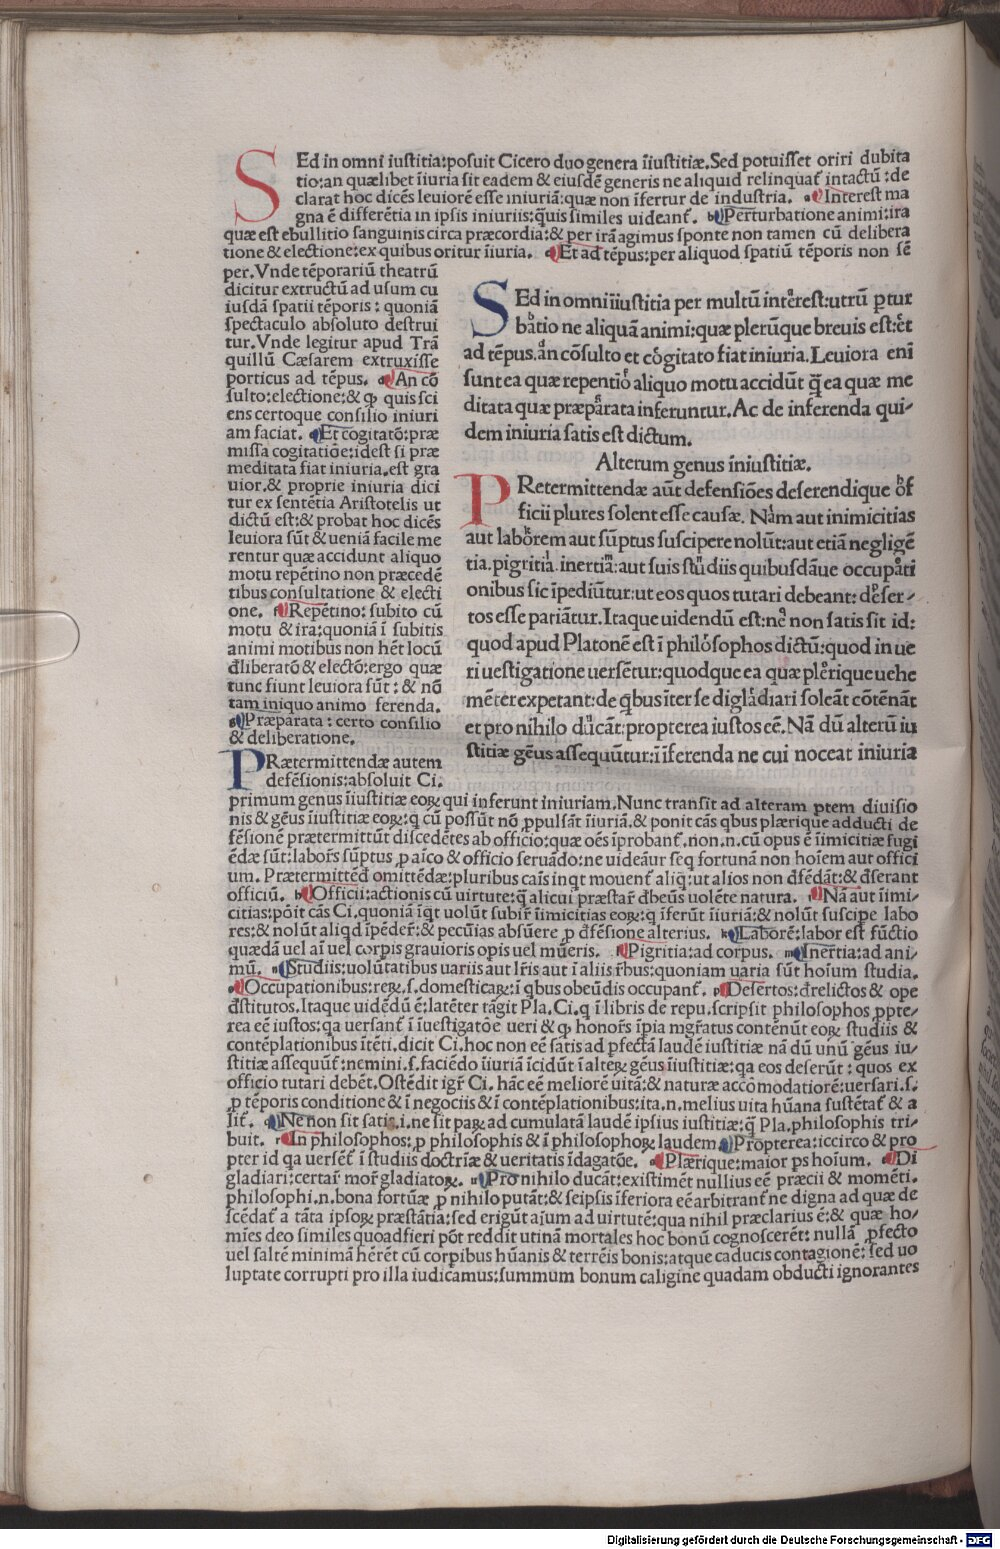 SEd in omni iustitia:posuit Cicero duo genera iiustitiæ.Sed potuisset oriri dubita
tio:an quælibet iiuria sit eadem & eiusdē generis ne aliquid relinquat̃ intactū:de
clarat hoc dicēs leuiorē esse iniuriā:quæ non ifertur de industria. a Interest ma
gna ē differētia in ipsis iniuriis:q̃uis similes uideant̃. b Perturbatione animi:ira
quæ est ebullitio sanguinis circa præcordia:& per irā agimus sponte non tamen cū delibera
tione & electione:ex quibus oritur iiuria. c Et ad tēpus:per aliquod spatiū tēporis non sē
per.Vnde tēporariū theatrū
dicitur extructū ad usum cu
iusdā spatii tēporis: quoniā
spectaculo absoluto destrui
tur.Vnde legitur apud Trā
quillū Cæsarem extruxisse
porticus ad tēpus. d An cō
sulto:electione:& ꝙ quis sci
ens certoque consilio iniuri
am faciat. e Et cogitatō:præ
missa cogitatiōe:idest si præ
meditata fiat iniuria.est gra
uior.& proprie iniuria dici
tur ex sentētia Aristotelis ut
dictū est:& probat hoc dicēs
leuiora sūt & ueniā facile me
rentur quæ accidunt aliquo
motu repētino non præcedē
tibus consultatione & electi
one. f Repētino: subito cū
motu & ira:quoniā ī subitis
animi motibus non hēt locū
đliberatō & electō:ergo quæ
tunc fiunt leuiora sūt: & nō
tam iniquo animo ferenda.
g Præparata: certo consilio
& deliberatione.
SEd in omni iiustitia per multū intērest:utrū ptur
batio ne aliquā animi:quæ plerūque breuis est:et
ad tēpus.an cōsulto et cogitato fiat iniuria.Leuiora enī
sunt ea quæ repentio aliquo motu accidūt q̃ ea quæ me
ditata quæ præparata inferuntur.Ac de inferenda qui-
dem iniuria satis est dictum.
Alterum genus īniustitiæ.
PRetermittendæ aūt defensiōes deserendique of
ficii plures solent esse causæ. Nam aut inimicitias
aut laborem aut sūptus suscipere nolūt:aut etiā negligē
tia.pigritia.inertia:aut suis studiis quibusdāue occupati
onibus sic īpediūtur:ut eos quos tutari debeant: deser-
tos esse pariātur.Itaque uidendū est:ne non satis sit id:
quod apud Platonē est ī philosophos dictū:quod in ue
ri uestigatione uersētur:quodque ea quæ plerique uehe
mēter expetant:de q̃bus iter se digladiari soleāt cōtēnāt
et pro nihilo ducāt:propterea iustos eē. Nā dū alterū iu
stitiæ geūs assequūtur:ī iferenda ne cui noceat iniuria
PRætermittendæ autem
defēsionis:absoluit Ci.
primum genus iiustitiæ eoꝝ qui inferunt iniuriam.Nunc transit ad alteram ptem diuisio
nis & geūs iiustitiæ eoꝝ:q cū possūt nō ꝓpulsāt iiuriā.& ponit cās qbus plæriquę adducti de
fēsionē prætermittūt discedētes ab officio:quæ oēs iprobant̃.non.n.cū opus ē iimicitiæ fugi
ēdæ sūt:labor̃s sūptus ꝓ aīco & officio seruādo:ne uideāur seq fortunā non hoīem aut offici
um. Prætermittēđ omittēdæ:pluribus caīs inqt mouent̃ aliq:ut alios non đfēdāt:& đserant
officiū. h Officii:actionis cū virtute:q̃ alicui præstar̃ đbeūs uolēte natura. i Nā aut iimi-
citias:pōit cās Ci.quoniā iqt uolūt subir̃ iimicitias eoꝝ:q iferūt iiuriā:& nolūt suscipe labo
res:& nolūt aliqđ ipēder̃:& pecūias absūere ꝓ đfēsione alterius. k Laborē:labor est fūctio
quædā uel aī uel corpis grauioris opis uel mūeris. l Pigritia:ad corpus. m Inertia:ad ani-
mū. n Studiis:uolūtatibus uariis aut lr̃is aut ī aliis r̃bus:quoniam uaria sūt hoīum studia.
o Occupationibus:reꝝ.s.domesticaꝝ:ī qbus obeūdis occupant̃. p Desertos:đrelictos & ope
đstitutos.Itaque uidēdū ē:latēter tāgit Pla.Ci.q ī libris de repu.scripsit philosophos ꝓpte-
rea eē iustos:qa uersant̃ ī iuestigatōe ueri & ꝙ honor̃s īpia mgr̃atus contēnūt eoꝝ studiis &
contēplationibus ītēti.dicit Ci.hoc non eē satis ad pfectā laudē iustitiæ nā dū unū geūs iu-
stitiæ assequūt̃:nemini.s.faciēdo iiuriā īcidūt ī alteꝝ geūs iiustitiæ:qa eos deserūt: quos ex
officio tutari debēt.Ostēdit igr̃ Ci. hāc eē meliorē uitā:& naturæ accōmodatiorē:uersari.s.
ꝓ tēporis conditione & ī negociis & ī contēplationibus:ita.n.melius uita hūana sustētat̃ & a
lit̃. q Ne non sit satis.i.ne sit paꝝ ad cumulatā laudē ipsius iustitiæ:q̃ Pla.philosophis tri-
buit. r In philosophos:ꝓ philosophis & ī philosophoꝝ laudem. s Propterea:iccirco & pro
pter id qa uersēt̃ ī studiis doctrīæ & ueritatis īdagatōe. t Plærique:maior ps hoīum. u Di
gladiari:certar̃ mor̃ gladiatoꝝ. x Pro nihilo ducāt:existimēt nullius eē præcii & momēti.
philosophi.n.bona fortūæ ꝓ nihilo putāt:& seipsis iferiora eē arbitrant̃ ne digna ad quæ de
scēdat̃ a tāta ipsoꝝ præstātia:sed erigūt aīum ad uirtutē:qua nihil præclarius ē:& quæ ho-
mīes deo similes quoadfieri pōt reddit utinā mortales hoc bonū cognoscerēt: nullā ꝓfecto
uel saltē minimā hērēt cū corpibus hūanis & terrēis bonis:atque caducis contagionē: sed uo
luptate corrupti pro illa iudicamus:summum bonum caligine quadam obducti ignorantes
Digitalisierung gefördert durch die Deutsche Forschungsgemeinschaft - DFG